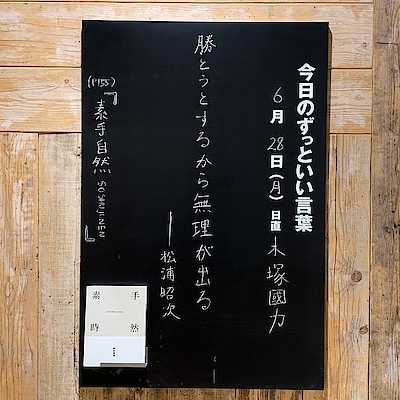 今日のずっといい言葉
6月28日(月) 日直 木塚國力
勝とうとするから無理が出る
― 松浦昭次
(P155)
『素手自然 SO SHU JI NEN』
素 手
時 然